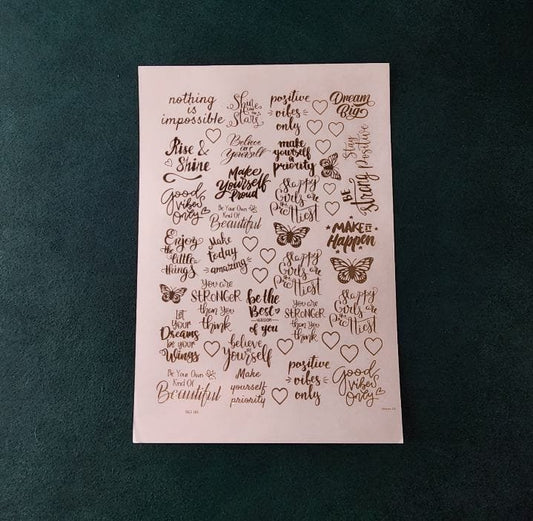 nothing
is
impossible
Shine
like the
Stars
positive
vibes
only
Dream
Big
Rise &
Shine
Believe
in
Yourself
make
yourself
a
priority
Stay
Positive
BE
Strong
Good
vibes
Only
Make
Yourself
Proud
Happy
Girls are
the
Prettiest
Be Your Own
Kind Of
Beautiful
MAKE IT
Happen
Enjoy
the little
things
Make
today
amazing
Happy
Girls are
the
Prettiest
You are
STRONGER
than You
think
be the
Best
VERSION
of you
You are
STRONGER
than You
think
Happy
Girls are
the
Prettiest
Let
Your
Dreams
be your
Wings
believe
in
Yourself
Be Your Own
Kind Of
Beautiful
Make
yourself
a
priority
positive
vibes
only
Good
vibes
Only